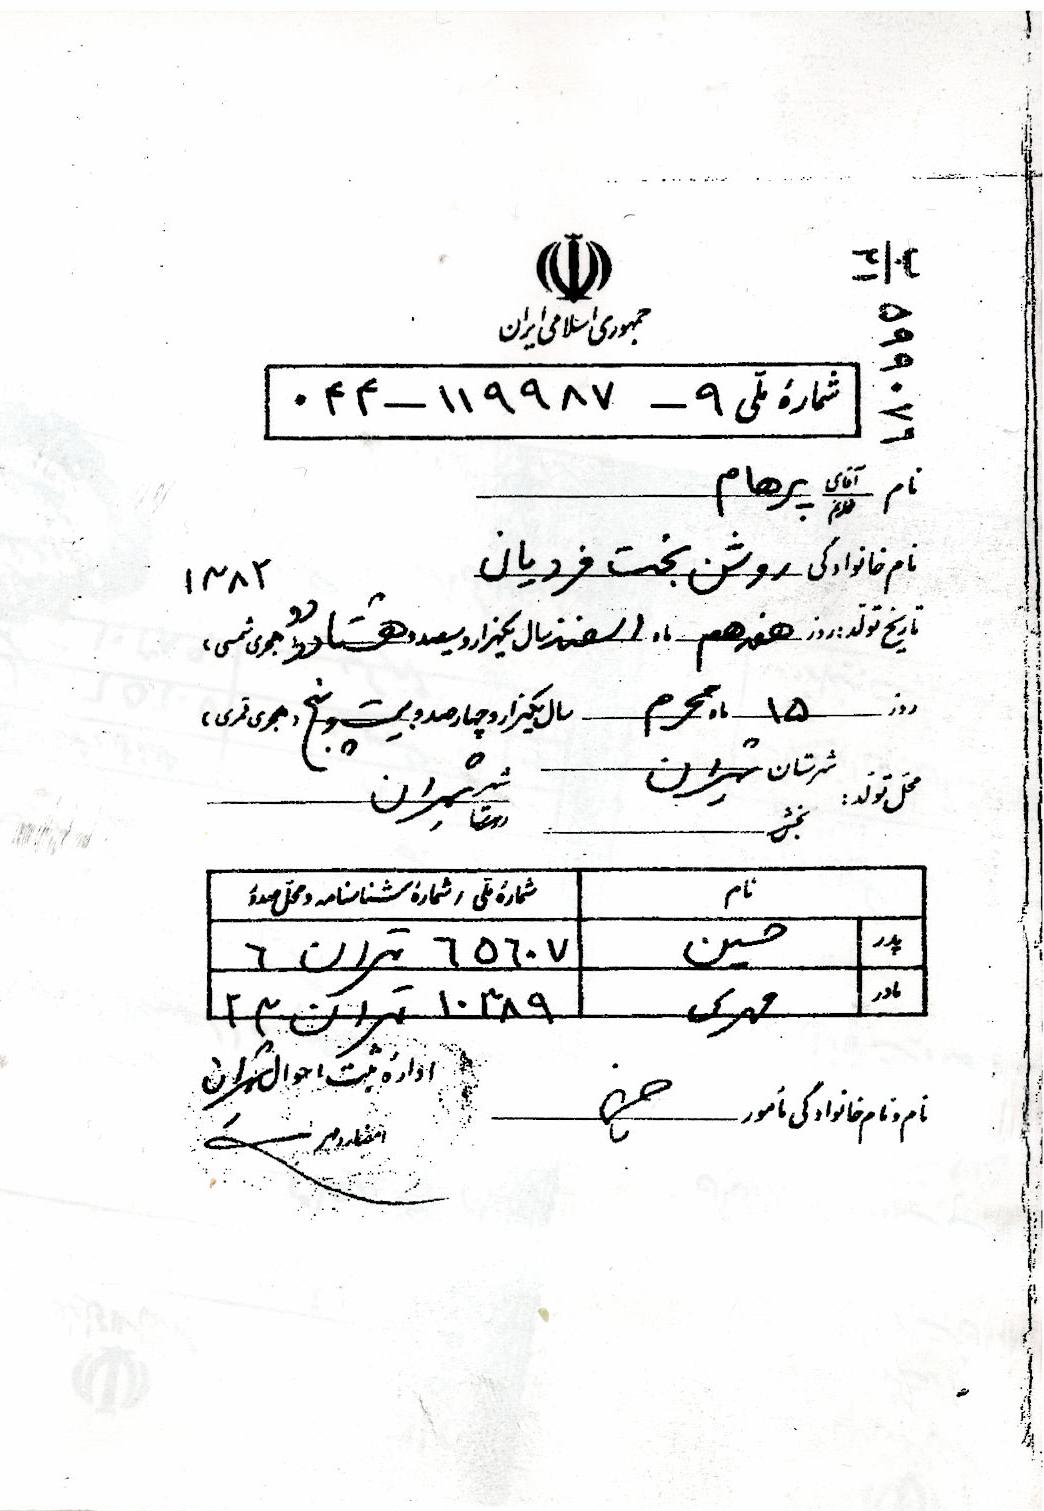 جمهوری اسلامی ایران
شمارهٔ ملّی ۰۴۴ـ۱۱۹۹۸۷ـ۹
۵۹۹۰۷۹
نام آقای خانم پرهام
نام خانوادگی روشن بخت فردیان
۱۳۸۲
تاریخ تولّد: روز هفدهم ماه اسفند سال یکهزار و سیصد و هشتاد و دو هجری شمسی،
روز ۱۵ ماه محرم سال یکهزار و چهارصد و بیست و پنج (هجری قمری)
محلّ تولّد: شهرستان تهران شهر تهران
بخش روستا
نام شمارهٔ ملّی / شمارهٔ شناسنامه و محلّ صدور
پدر حسین ۶۵۶۰۷ تهران ۶
مادر مهری ۱۰۳۸۹ تهران ۲۳
ادارهٔ ثبت احوال تهران
نام و نام خانوادگی مأمور
امضاء و مهر